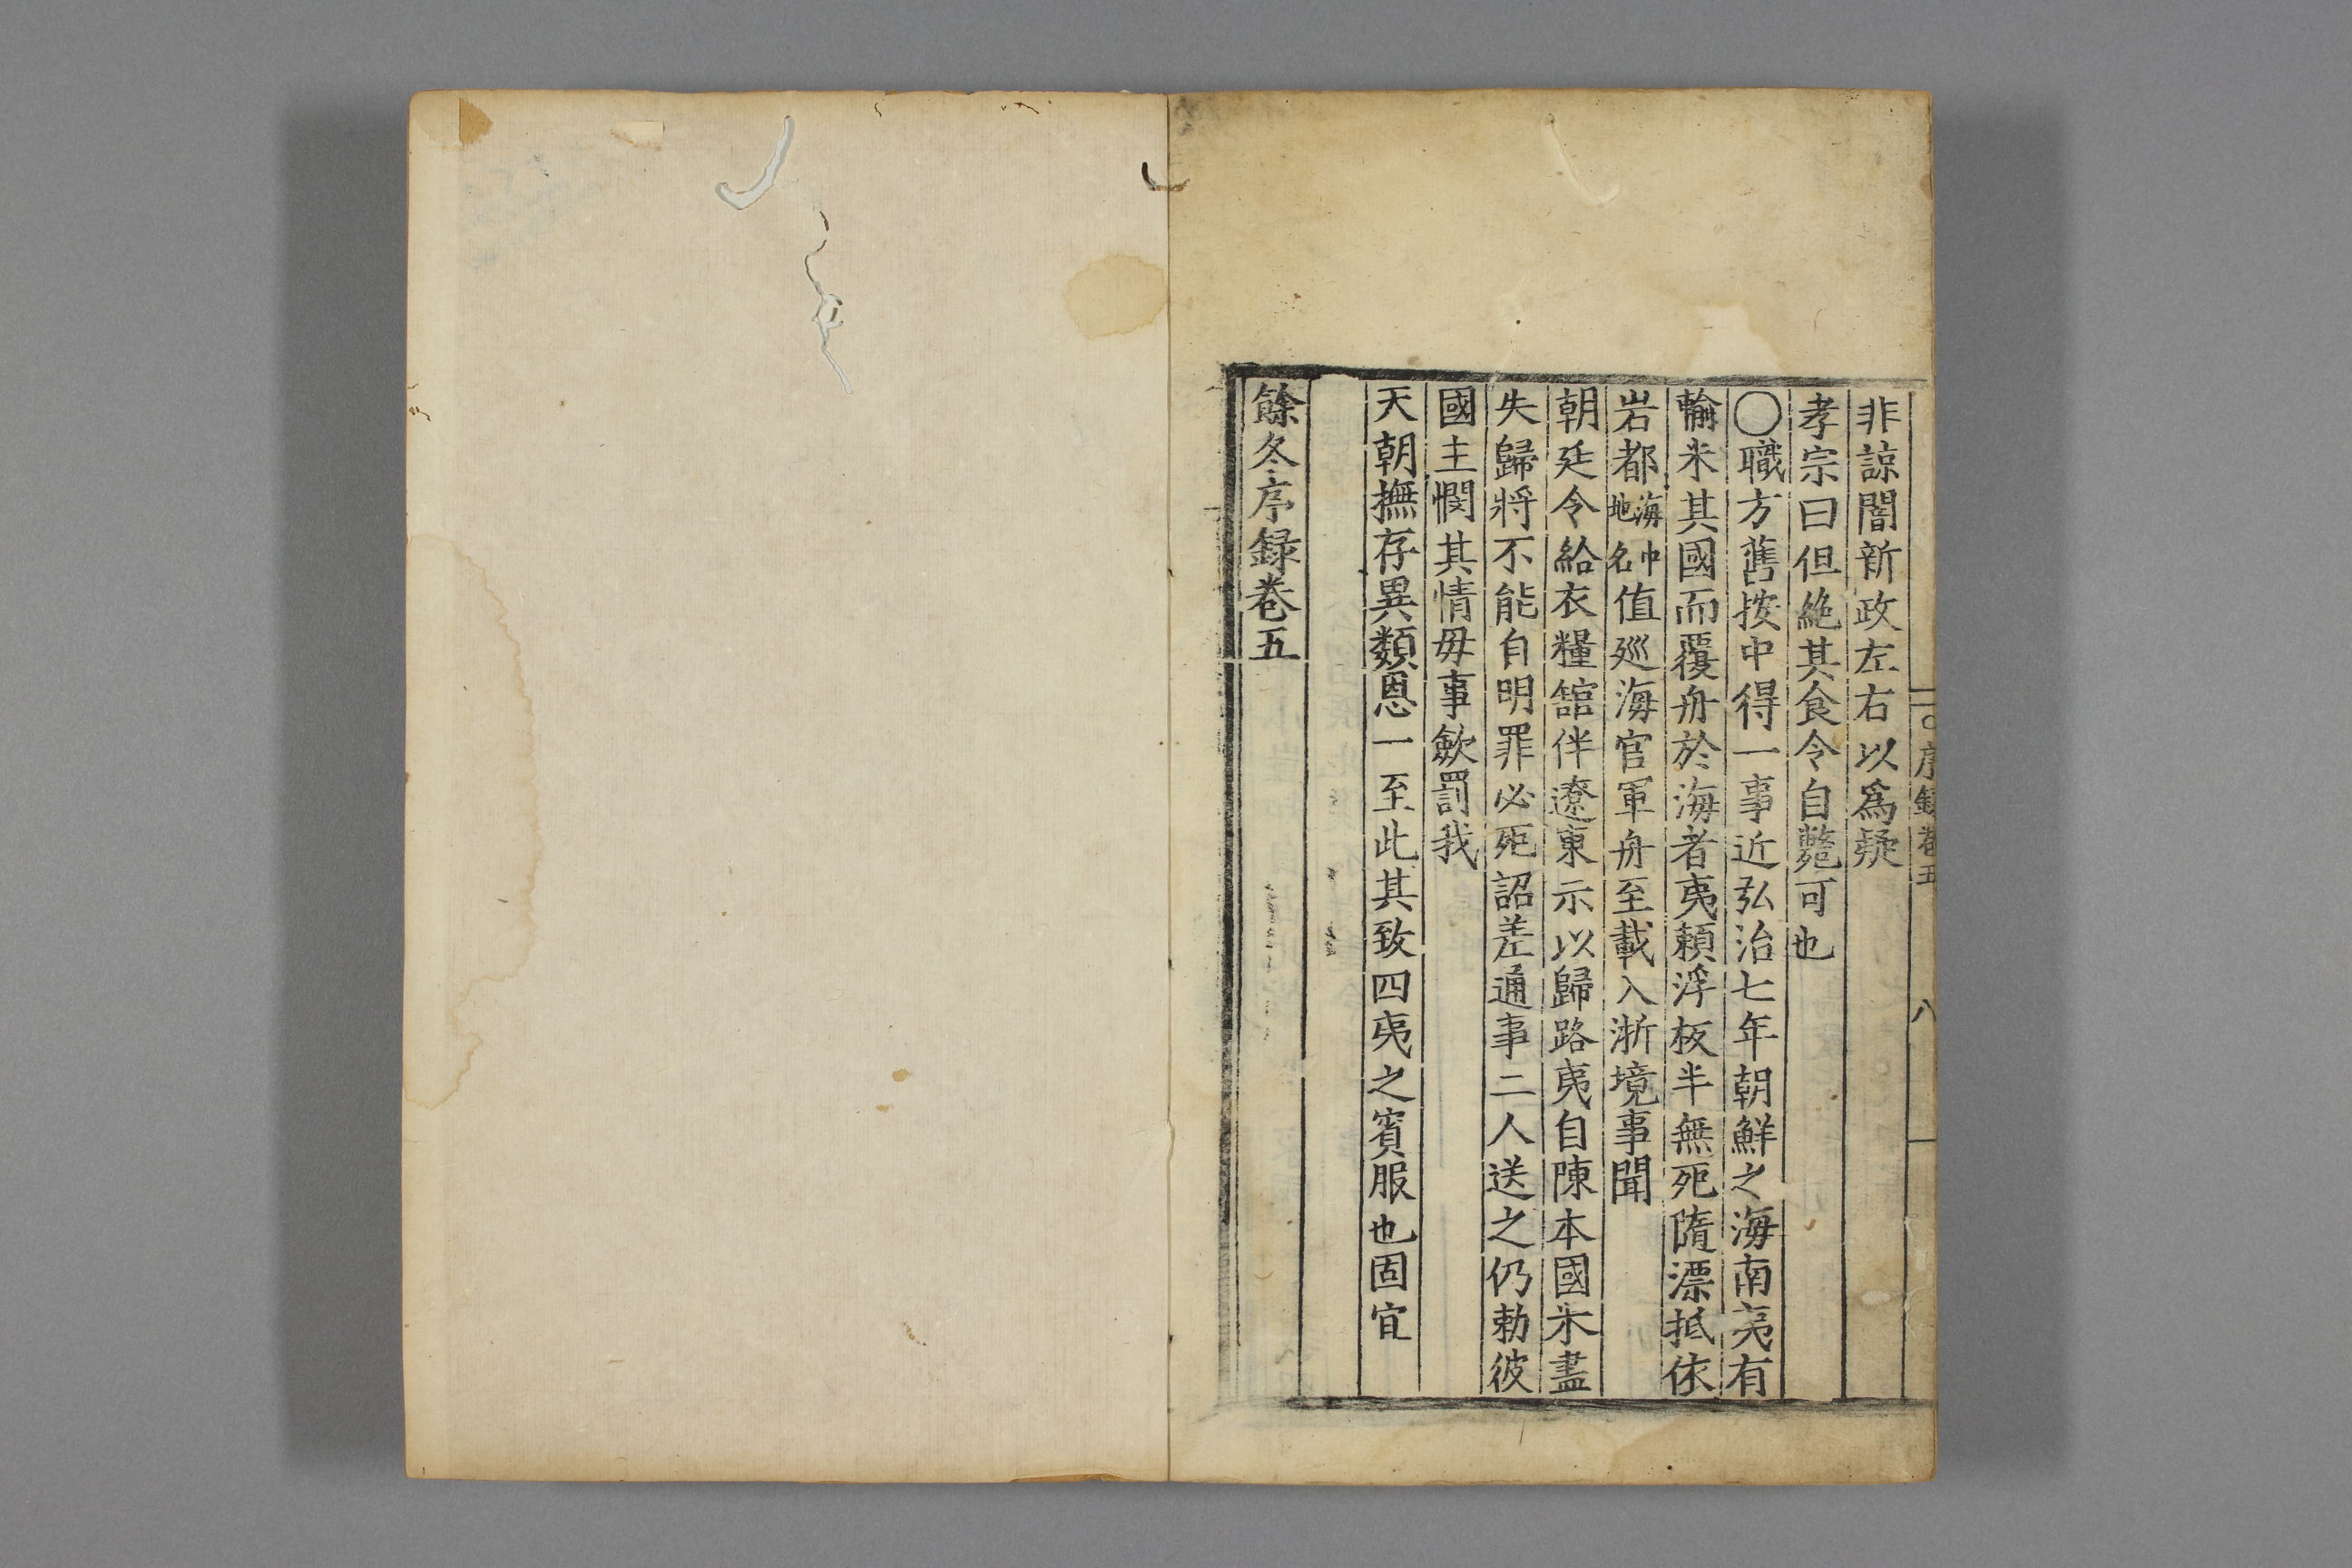 序録卷五 八
非諒闇新政左右以爲疑
孝宗曰但絶其食令自斃可也
〇職方舊按中得一事近弘治七年朝鮮之海南夷有
輸米其國而覆舟於海者夷頼浮板半無死隋漂抵依
岩都海中地名值廵海官軍舟至載入浙境事聞
朝廷令給衣糧舘伴遼東示以歸路夷自陳本國米盡
失歸將不能自明罪必死詔差通事二人送之仍勅彼
國主憫其情毋事歛罰我
天朝撫存異類恩一至此其致四夷之賓服也固宜
餘冬序録卷五